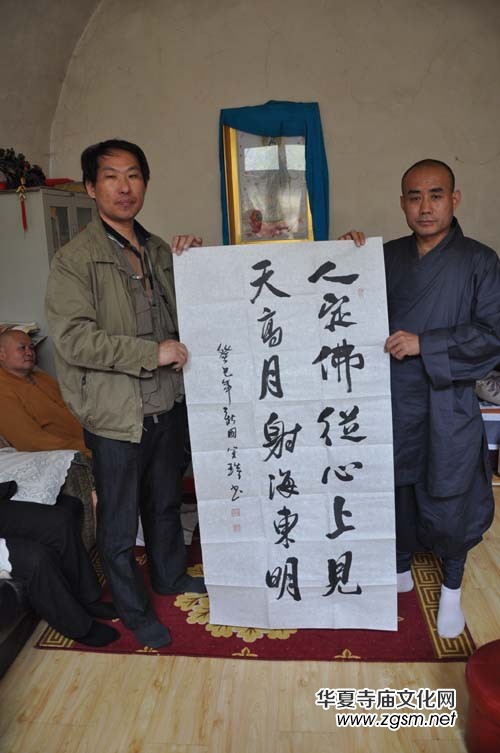 人定佛從心上見
天高月射海東明
癸巳年 国 书
华夏寺庙文化网
www.zgsm.net